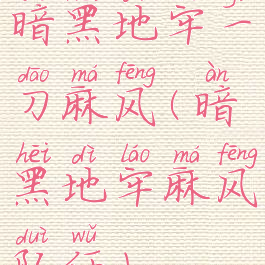 暗黑地牢一
dāo má fēng àn
刀麻风(暗
hēi dì láo má fēng
黑地牢麻风
duì wǔ
队伍)